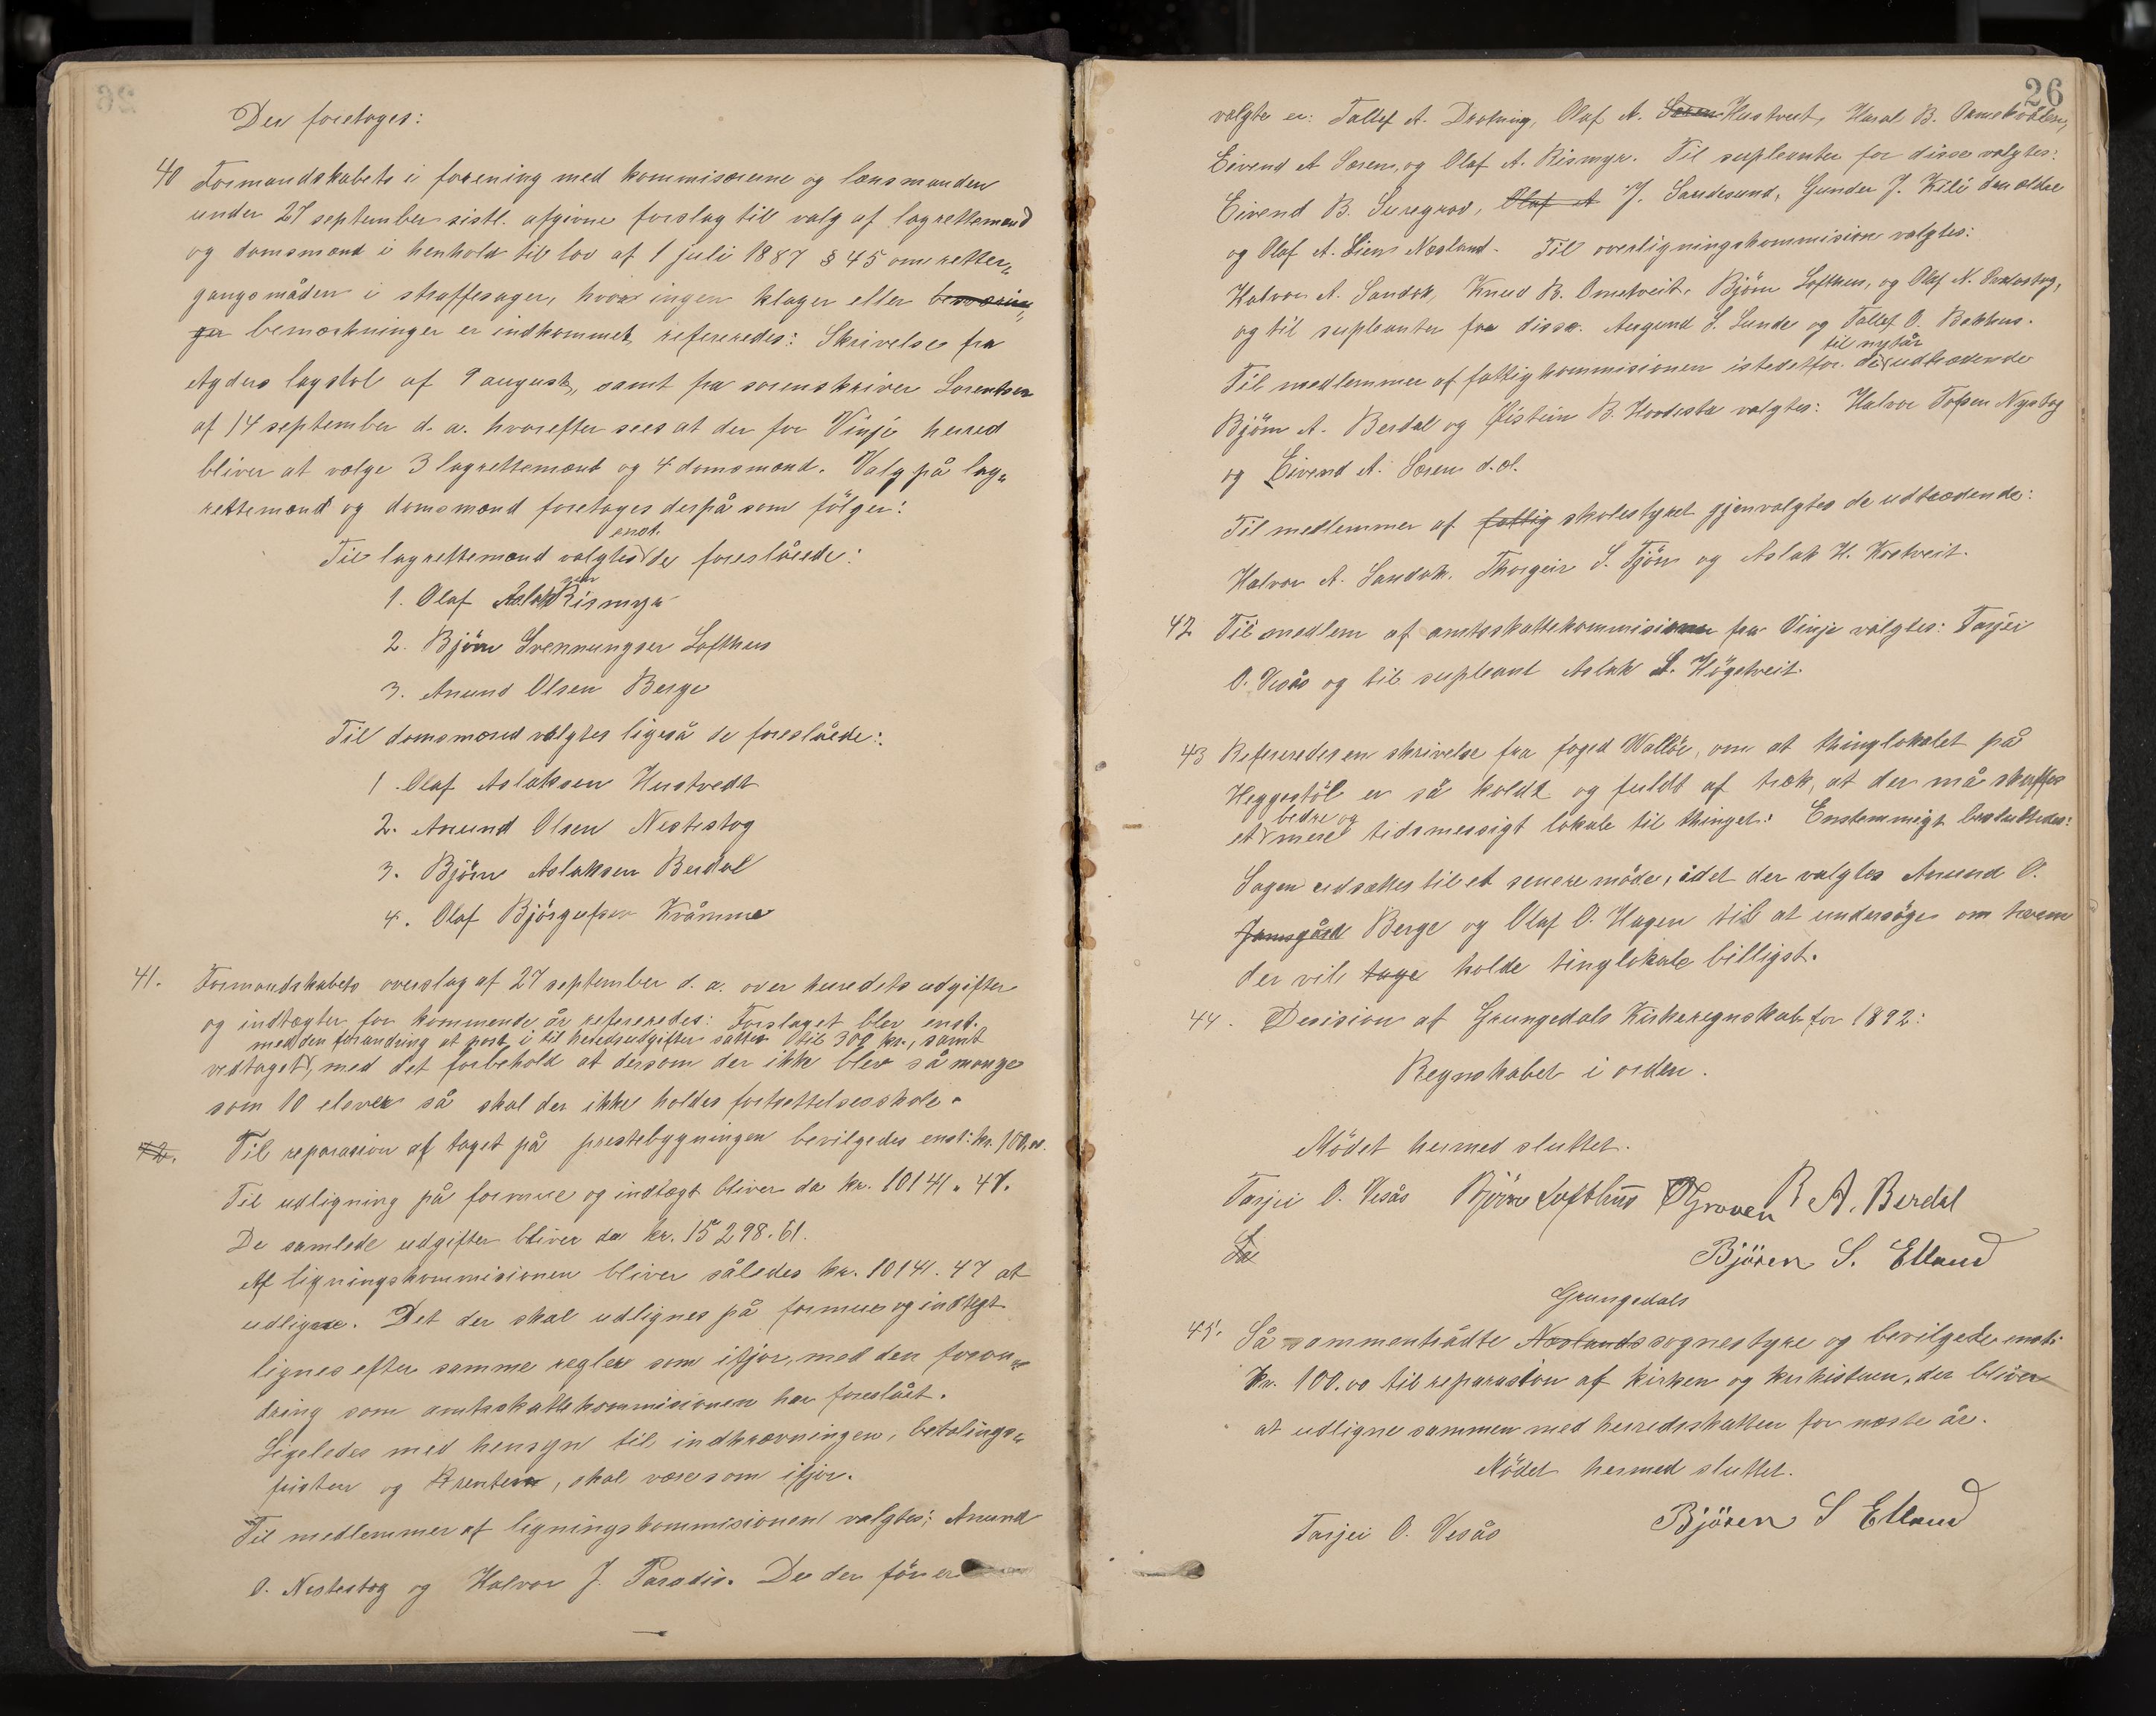 Der foretoges:
40 Formandskabets i forening med kommisærerne og lensmanden
under 27 september sistl. afgivne forslag til valg af lagrettemænd
og domsmænd i henhold til lov af 1 juli 1887 § 45 om retter„
gangsmåden i straffesager, hvor ingen klager eller
bemærkninger er indkommet refereredes: Skrivelse fra
Agders lagstol af 9 august, samt fra sorenskriver Lorentsen
af 14 september d. a. hvorefter sees at der for Vinje herred
bliver at vælge 3 lagrettemænd og 4 domsmænd. Valg på lag„
rettemænd og domsmænd foretoges derpå som følger:
enst.
Til lagrettemænd valgtes de foreslåede:
1. Olaf Aslaksen Rismyr
2. Bjöm Svennungsen Lofthus
3. Anund Olsen Berge
Til domsmænd valgtes ligeså de foreslåede:
1. Olaf Aslaksen Hustvedt
2. Anund Olsen Nestestog
3. Björn Aslaksen Berdal
4. Olaf Björgufsen Kvåmme
41. Formandskabets overslag af 27 september d. a. over herredets udgifter
og indtægter for kommende år refereredes: Forslaget blev enst.
med den forandring at post i til herredsudgifter sættes til 300 kr., samt
vedtaget, med det forbehold at dersom der ikke blev så mange
som 10 elever så skal der ikke holdes fortsættelsesskole.
42. Til reparasion af taget på prestebygningen bevilgedes enst: kr. 100,00.
Til udligning på formue og indtægt bliver da kr. 10141. 47.
De samlede udgifter bliver da kr. 15298. 61.
Af ligningskommisionen bliver således kr. 10141. 47 at
udligne. Det der skal udlignes på formue og indtegt
lignes efter samme regler som ifjor, med den foran„
dring som amtsskattekommisionen har foreslået.
Ligeledes med hensyn til indkrævningen, betalings„
fristen og renten, skal være som ifjor.
Til medlemmer af ligningskommisionen valgtes: Anund
O. Nestestog og Halvor J. Paradis. De der för er
26
valgte er: Tallef A. Drotning, Olaf A. Hustveit, Haral B.
Eivend A Særen, og Olaf A. Rismyr. Til supleanter for disse valgtes:
Eivend B. Suregrov, Olaf A J. Sandesund, Gunder J. Kili den ældre
og Olaf A. Lien Næsland. Til overligningskommision valgtes:
Halvor A. Sandok, Knud B. Ometveit, Björn Lofthus, og Olaf N.
og til supleanter for disse. Aasmund S. Lunde og Tallef O. Bakhus.
til nytår
Til medlemmer af fattigkommisionen istedetfor de udtrædende
Björn A. Berdal og Østein B. valgtes: Halvor Tofsen Nystog
og Eivend A. Særen d. æ.
Til medlemmer af fattig skolestyret gjenvalgtes de udtrædende:
Halvor A. Sandok. Thorgeir S. Tjön og Aslak H. Kostveit.
42 Til medlem af amtsskattekommisionen fra Vinje valgtes: Tarjei
O. Vesås og til supleant Aslak L. Högetveit.
43 Refereredes en skrivelse fra foged Walløe, om at thinglokalet på
Heggestöl er så koldt og fuldt af træk, at der må skaffes
bedre og
et mere tidsmessigt lokale til thinget: Enstemmigt besluttedes:
Sagen udsættes til et senere möde, idet der valgtes Anund O.
Jamsgård Berge og Olaf O. Hagen til at undersöge om hvem
der vil tage holde tinglokale billigst.
44. Desision af Grungedals Kirkeregnskab for 1892:
Regnskabet i orden.
Mödet hermed sluttet.
Tarjei O. Vesås Björn Lofthus Groven B A. Berdal
Björen S. Etland
Grungedals
45. Så sammentrådte Næslands sognestyre og bevilgede enst:
kr. 100.00 til reparasion af kirken og kirkistuen, der bliver
at udligne sammen med herredsskatten for næste år.
Mödet hermed sluttet.
Tarjei O. Vesås Björen S Etland